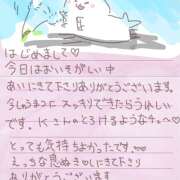 はじめまして♡
今日はおいそがしい中
あいにきて下さりありがとうございます。
少しゅうっこ スッキリできたらうれしい
です。Kさんのとろけるようなチューへ♡
とっても気持ちよかったですっ。
えっちな良ぬき♡しにきて下さり
ありがとうございます